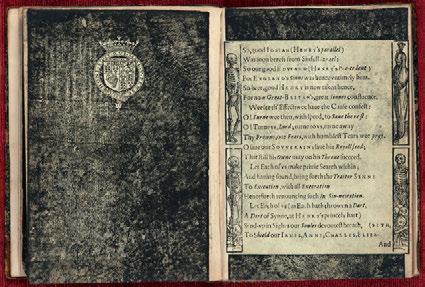 So, good IOSIAH (HENRY's parallel)
Was soon bereft from Sinfull-Israel:
So our good EDVVARD (HENRY's Præcedent)
For ENGLAND's sinnes was hence untimely hent.
So here, good HENRY is now taken hence,
For now Great-BRITAN's great sinnes consequence.
We see th'Effect: we have the Cause confest:
O! Turne we then, with speed, to Save the rest:
O! Turne vs, Lord; turne to vs, turne away
Thy Frowns, our Fears, with humblest Tears wee pray.
O! save our SOVERAIGN: save his Royall seed;
That still his Owne may on his Throne succeed.
Let Each of vs make privie Search within;
And having found, bring forth the Traitor SINNE
To Execution, with all Execration
Henceforth renouncing such
Let Each of Each hath thrown a Dart,
A Dart of Synne, at HENRY's princely hart)
Send vp in Sighs our Soules devoutest breath,
To Shield our IAMES, ANNE, CHARLES, ELIZA
BETH,
And